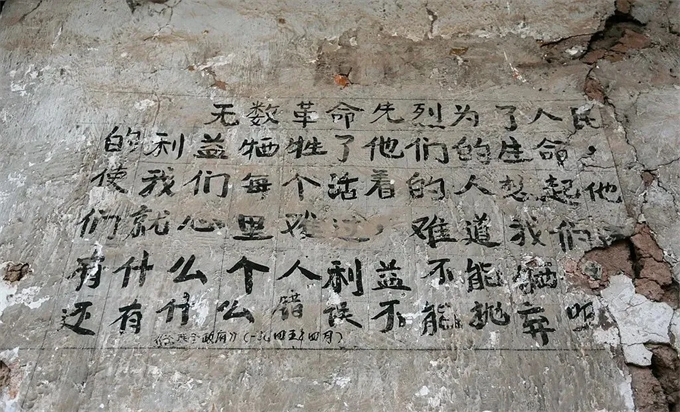 无数革命先烈为了人民
的利益牺牲了他们的生命，
使我们每个活着的人想起他
们就心里难过，难道我们还
有什么个人利益不能牺
还有什么错误不能抛弃吗
《论联合政府》（一九四五年四月）